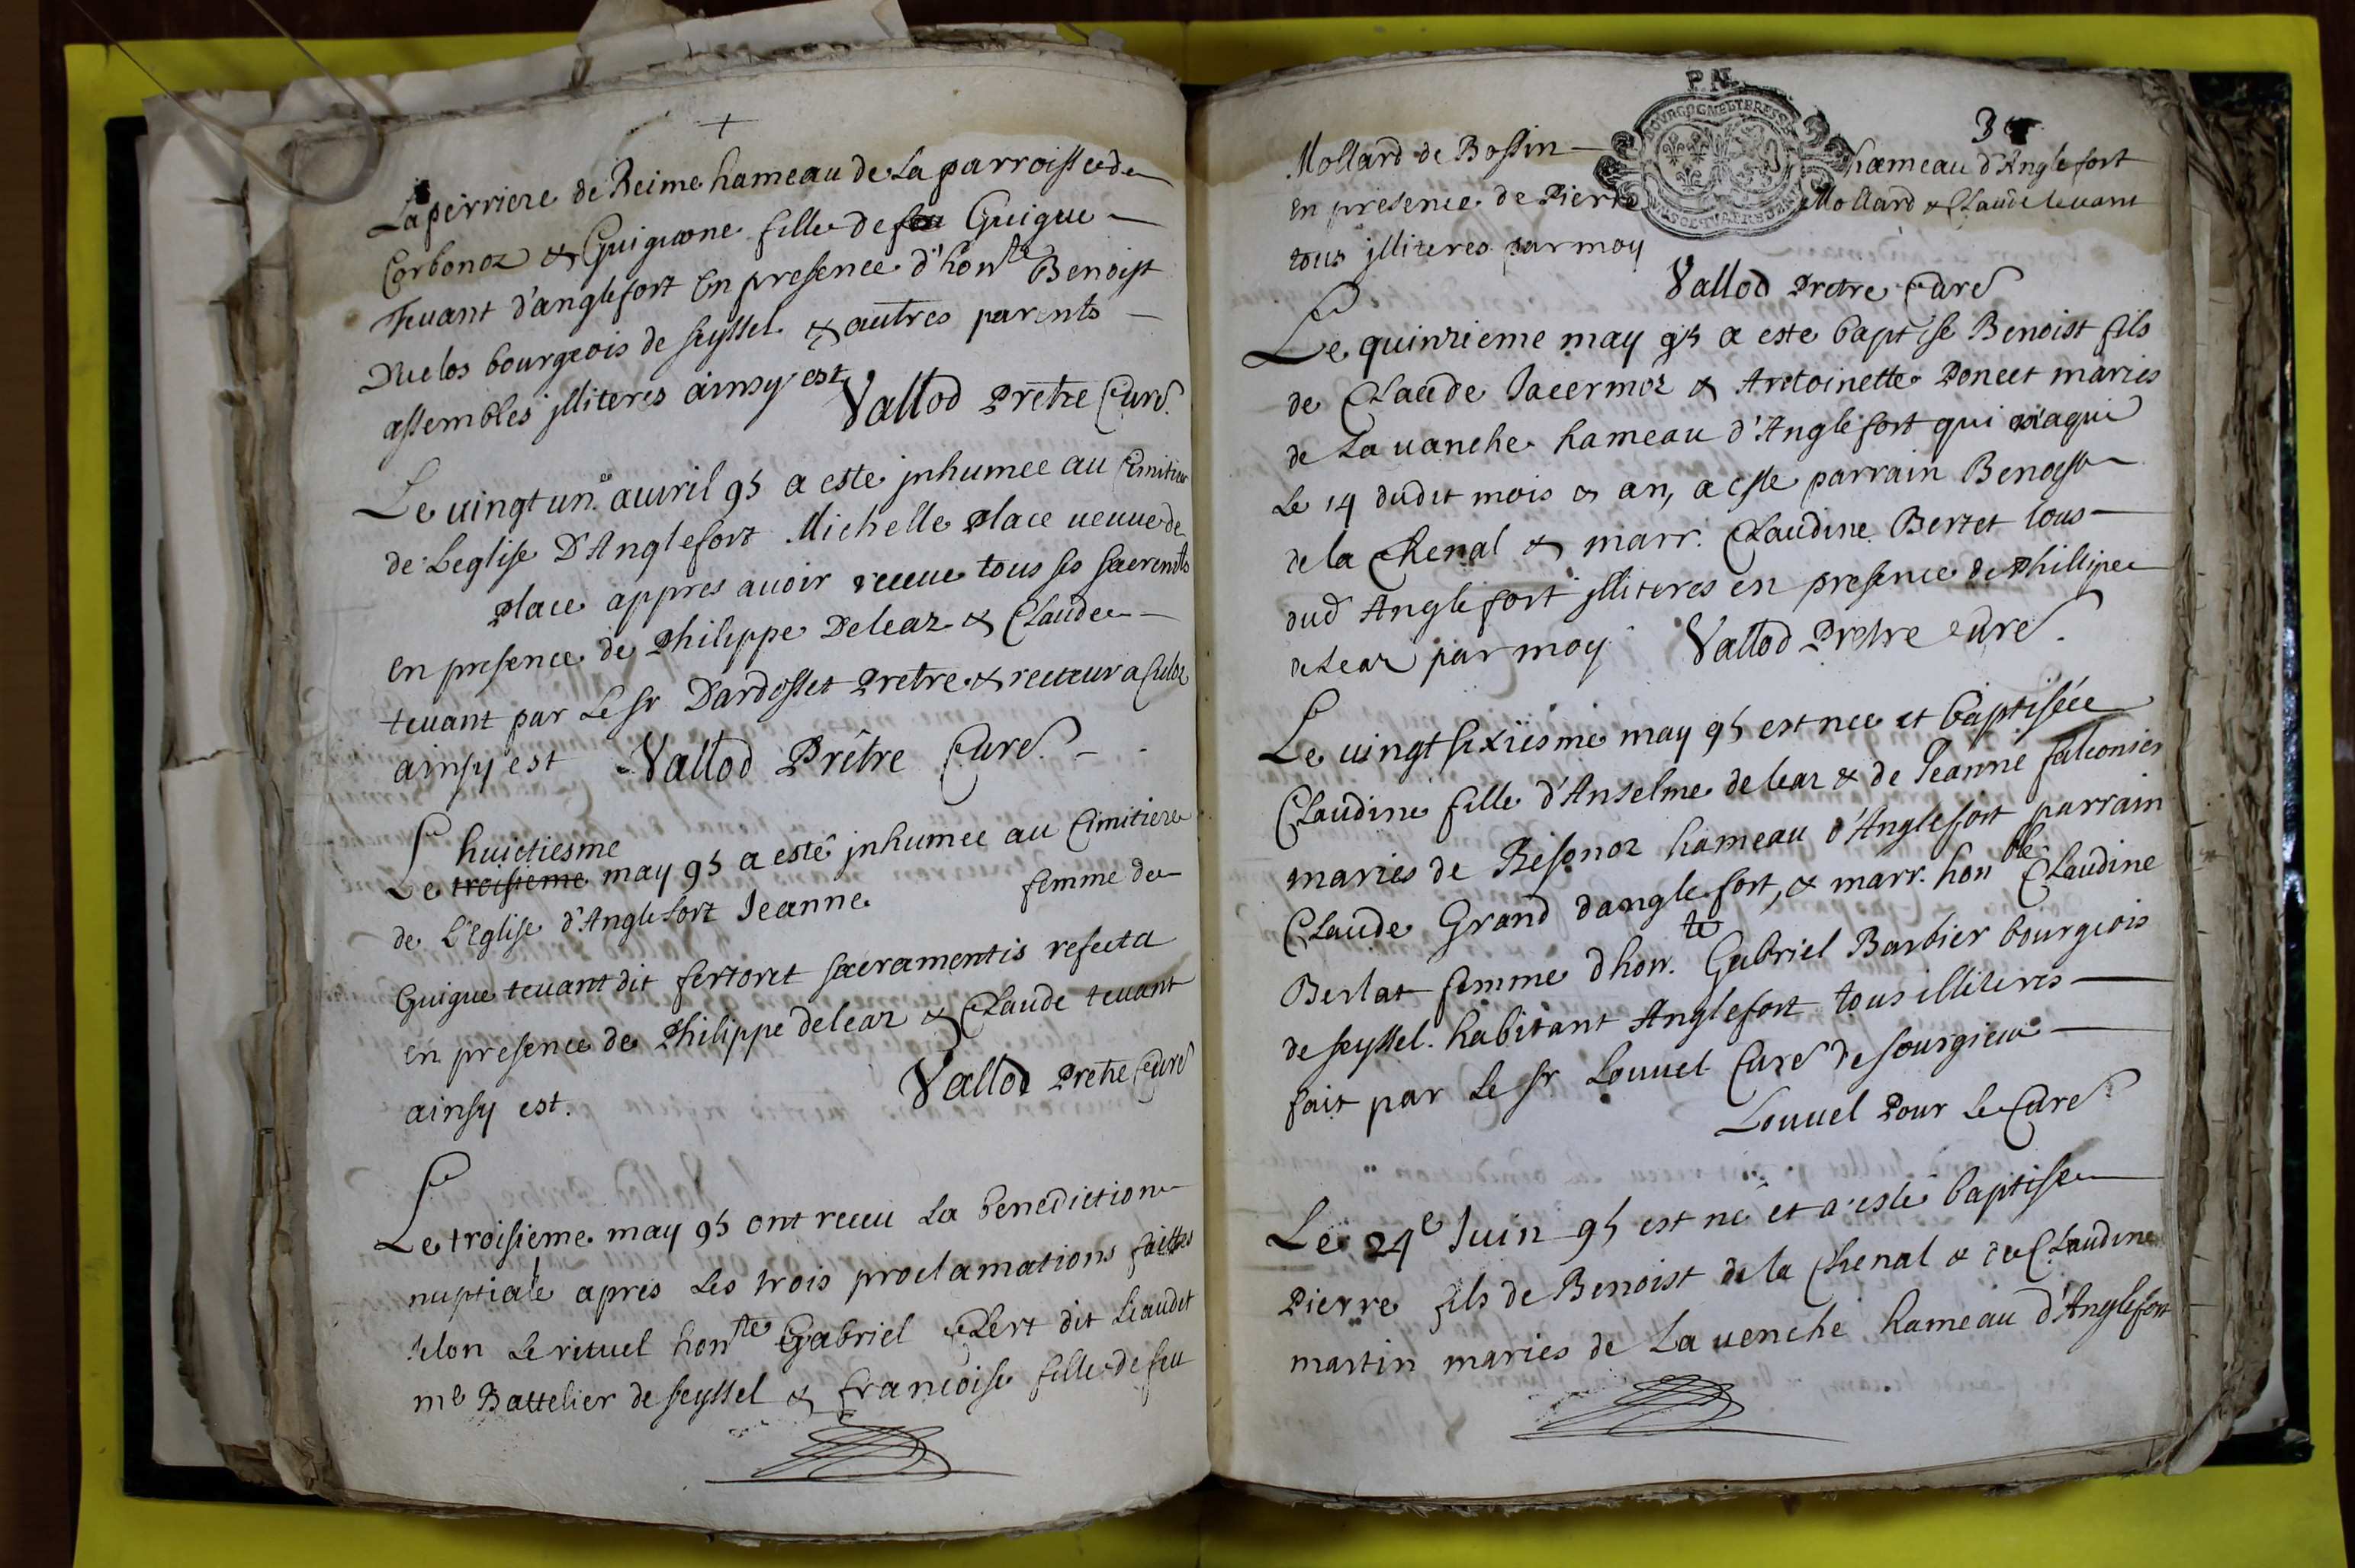 +
Laperriere de Reime hameau de La parroisse de
Corbonoz & Guigonne fille de feu Guigue
Teuant d'anglefort En presence d'honte Benoist
Duclos bourgeois de seyssel & autres parents
assemblés jlliteres ainsy est
Vallod Prêtre Curé
Le uingt un.e auvril 95 a esté jnhumee au Cimitiere
de Leglise D'Anglefort Michelle Place ueuue de
Place appres auoir receue tous ses sacremts
En presence de Philippe Delear & Claude
teuant par Le sr Dardosset Pretre & recteur a Culoz
ainsy est Vallod Prêtre Curé
huictiesme
Le troisieme may 95 a esté jnhumee au Cimitiere
de L'Eglise d'Anglefort Jeanne femme de
Guigue teuant dit fertoret sacramentis refecta
en presence de Philippe delear & Claude teuant
ainsy est. Vallod Pretre Curé
Le troisieme may 95 ont receu La benediction
nuptiale apres Les trois proclamations faittes
selon Le rituel honte Gabriel Clert dit Liaudet
me Battelier de seyssel & francoise fille de feu
P.N.
BOURGOGNE ET BRESSE
3
Mollard de Bossin hameau d'Anglefort
en presence de Pierre Mollard & Claude teuant
tous jlliteres par moy
Vallod Pretre Curé
Le quinzieme may 95 a este baptisé Benoist fils
de Claude Jacermoz & Antoinette Poncet mariés
de La uanche hameau d'Anglefort qui naquit
Le 14 dudit mois & an, a esté parrain Benoist
de la Chenal & marr. Claudine Bertet tous
dud Anglefort jlliteres en presence de Phillipe
delear par moy Vallod Pretre curé.
Le uingt sixiesme may 95 est nee et baptisée
Claudine fille d'Anselme delear & de Jeanne falconier
mariés de Resonoz hameau d'Anglefort parrain
Claude Grand danglefort, & marr. honble Claudine
Berlat femme dhon.te Gabriel Barbier bourgeois
de seyssel. habitant Anglefort tous illiteres
fait par Le sr Louuel Curé de sourgieu
Louuel Pour Le Curé
Le 24e Juin 95 est né et a esté baptisé
Pierre fils de Benoist de la Chenal & de Claudine
martin mariés de La uenche hameau d'Anglefort